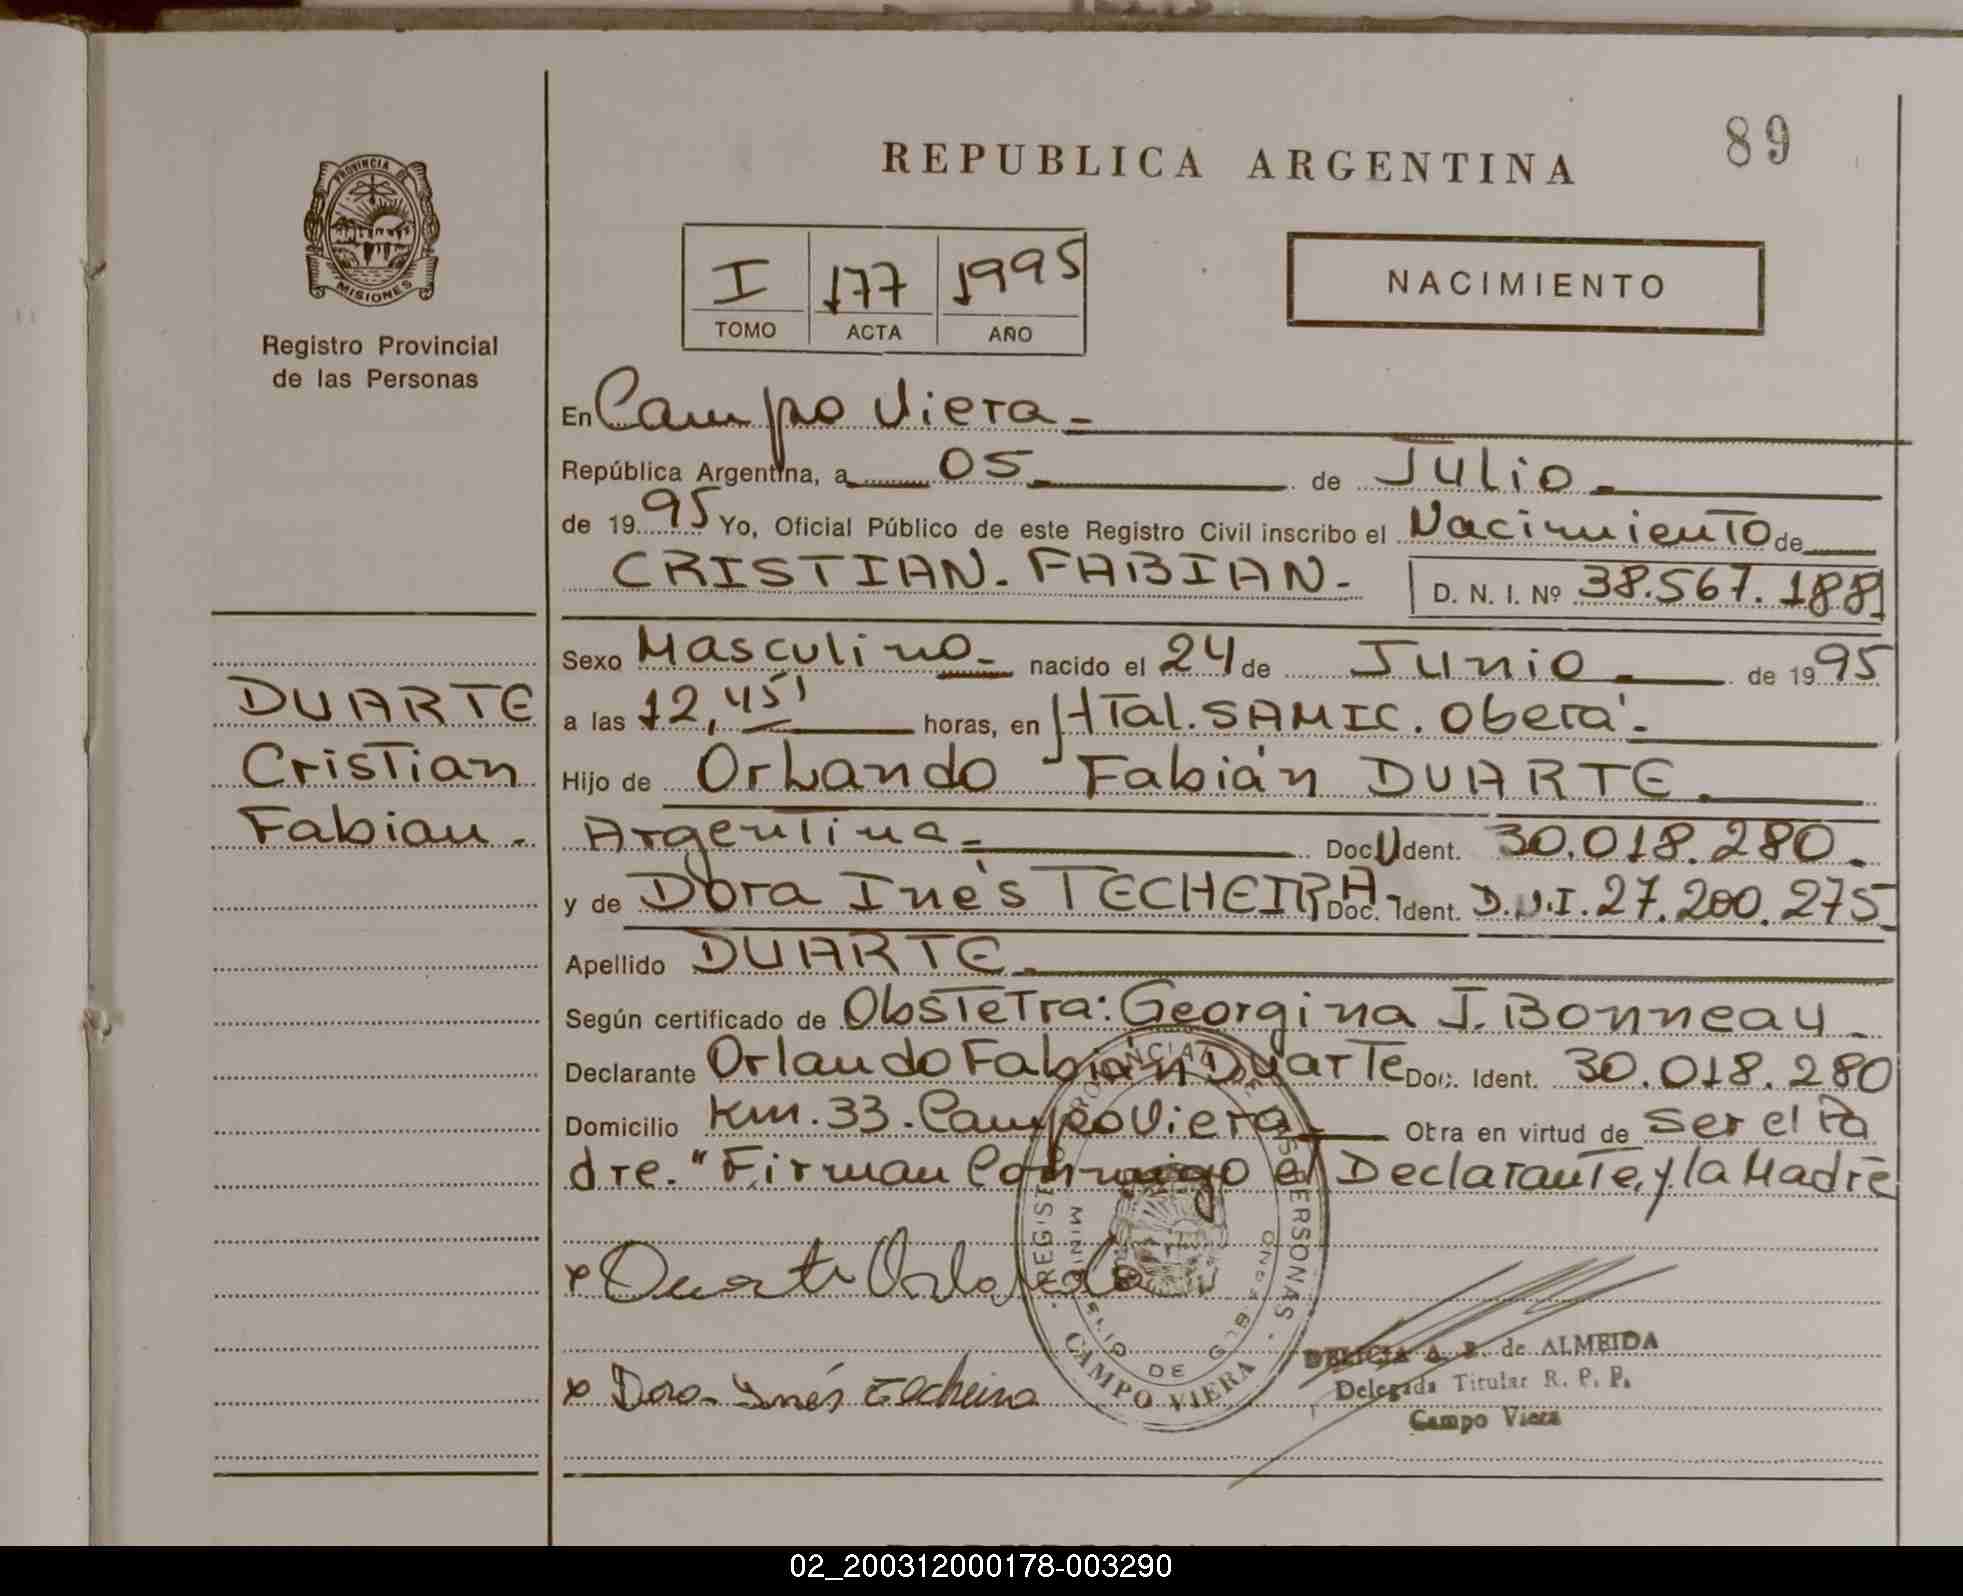 89
REPUBLICA ARGENTINA
PROVINCIA DE
MISIONES
Registro Provincial
de las Personas
I 177 1995
TOMO ACTA AÑO
NACIMIENTO
En Campo Viera-
República Argentina, a 05 de Julio-
de 1995 Yo, Oficial Público de este Registro Civil inscribo el Nacimiento de
CRISTIAN. FABIAN- D. N. I. Nº 38.567.188
Sexo Masculino- nacido el 24 de Junio de 1995
a las 12,45' horas, en HTal. SAMIC. Oberá-
Hijo de Orlando Fabián DUARTE.
Argentina- Doc. Ident. 30.018.280.
y de Dora Inés TECHEIRA- Doc. Ident. D.N.I. 27.200.275
Apellido DUARTE.
Según certificado de Obstetra: Georgina J. Bonneau-
Declarante Orlando Fabián Duarte Doc. Ident. 30.018.280
Domicilio Km. 33. Campo Viera Obra en virtud de ser el Pa
dre. "Firman Conmigo el Declarante, y la Madre
DUARTE
Cristian
Fabian.
x Duarte Orlando
x Dora Inés Techeira
CAMPO VIERA
DELICIA A. B. de ALMEIDA
Delegada Titular R. P. P.
Campo Viera
02_200312000178-003290